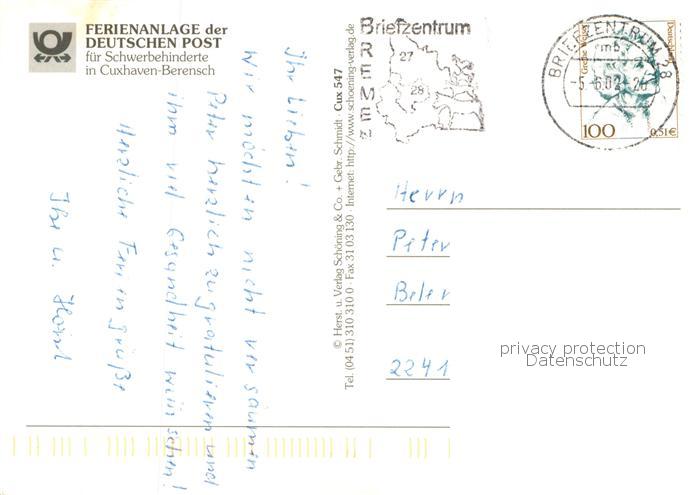 FERIENANLAGE der
DEUTSCHEN POST
für Schwerbehinderte
in Cuxhaven-Berensch
Ihr Lieben!
Wir möchten nicht versäumen
Peter herzlich zu gratulieren und
ihm viel Gesundheit wünschen!
Herzliche Feriengrüße
Ihr u.
© Herst. u. Verlag Schöning & Co. + Gebr. Schmidt · Cux 547
Tel. (04 51) 310 310 0 · Fax 31 03 130 · Internet: http://www.schoening-verlag.de
Briefzentrum
BREMEN
27
28
BRIEFZENTRUM 28
mb
-5.6.02-20
Grethe Weiser
Deutschland
100
0,51€
Herrn
Peter
Beler
2241
privacy protection
Datenschutz